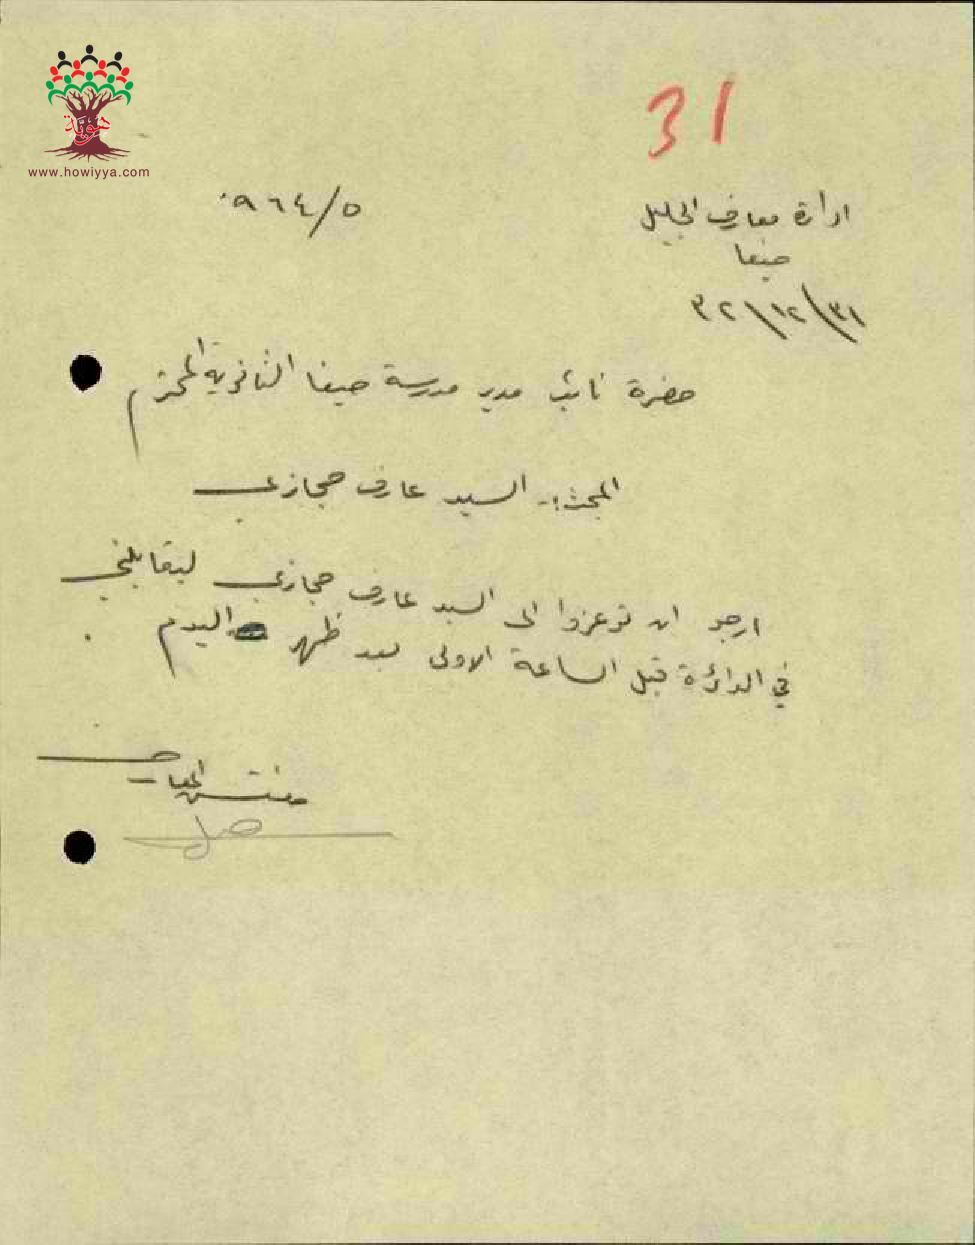 هوية
www.howiyya.com
31
ادارة معارف الجليل
حيفا
٣١/١٢/٣٢
٥/٩٦٤
حضرة نائب مدير مدرسة حيفا الثانوية المحترم
المبحث:- السيد عارف حجازي
ارجو ان توعزوا الى السيد عارف حجازي ليقابلني
في الدائرة قبل الساعة الاولى بعد ظهر اليوم .
مفتش المعارف